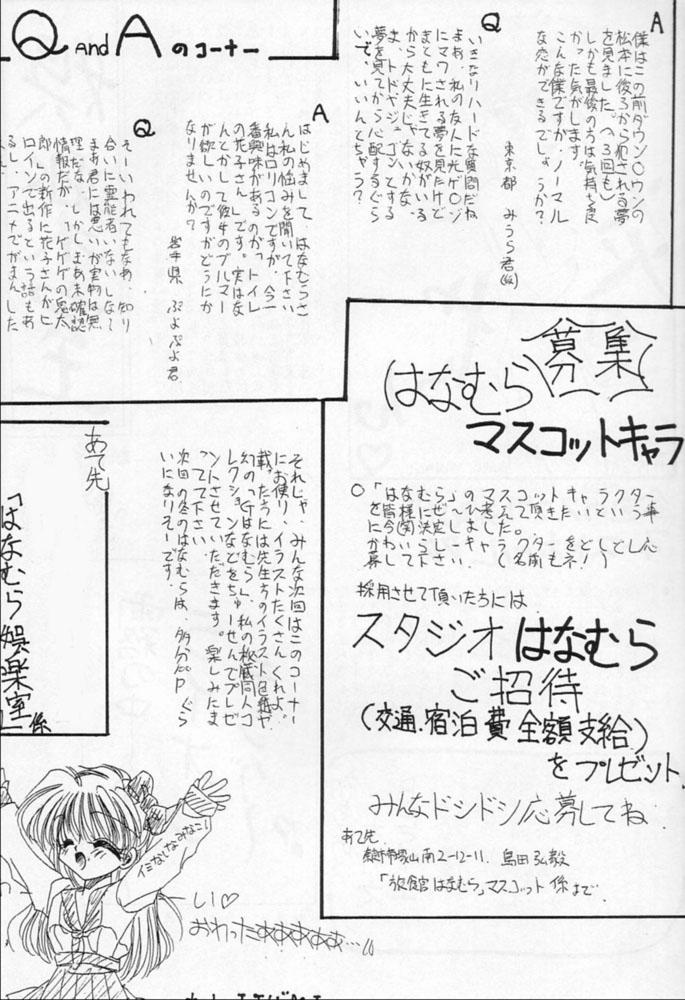 Q AND A のコーナー
A
僕はこの前ダウン〇ウンの
松本に後ろから犯される夢
を見ました。(へ3回も)
しかも最後のちは気持ち良
かった気がします。
こんな僕ですが、ノーマル
な恋ができるでしょうか?
東京都 みうら君(仮)
Q
いきなりハードな質問だね
よぁぁ、私の友人に光ゲ〇ジ
にマワされる夢を見たけど
まともに生きてる奴がいる
から大丈夫じゃないかな。
ま、トドやジュゴンとする
夢を見てから心配するぐら
いで、いいんとちゃう?
A
はじめまして、はなむらさ
ん、私の悩みを聞いて下さい
私はロリコンですが、今一
番興味があるのがっトイレ
の花子さん〟です。実はな
んとかして彼女のブルマー
が欲しいのですがどうにか
なりませんか?
岩手県 ぷよぷよ君
Q
そーいわれてもなぁ、知り
合いに霊能者いないしなて
まぁ君には悪いが実物は無
理だな。しかしまぁ未確認
情報だが、「ゲゲゲの鬼太
郎」の新作に花子さんがヒ
ロインで出るという話もあ
るし、アニメでがまんした
募集
はなむら
マスコットキャラ
○「はなむら」のマスコットキャラクター
を皆様にぜひ考えて頂きたいという事
に今(笑)決定しました。
かわいらしーいキャラクターをどしどし応
募して下さい。(名前もネ!)
採用させて頂いたちには
スタジオはなむら
ご招待
(交通.宿泊費全額支給)
をプレゼント.
みんなドシドシ応募してね
あて先
山南2-12-11. 島田弘毅
「旅館はなむら」マスコット係まで
それじゃ、みんな次回はこのコーナー
にお便り、イラストたくさんくれよ。
載ったちには先生ちのイラスト色紙や
幻の「Gはなむら」、私の秘蔵同人コ
レクションなどをちゅーせんでプレゼ
ントさせていただきます。楽しみたま
ってて下さい。
次回の冬のはなむらは、多分 P ぐら
いになりそーです。
あて先
「はなむら娯楽室」係
イミなくなみなこ!
LI♡
おわったあああああ…//